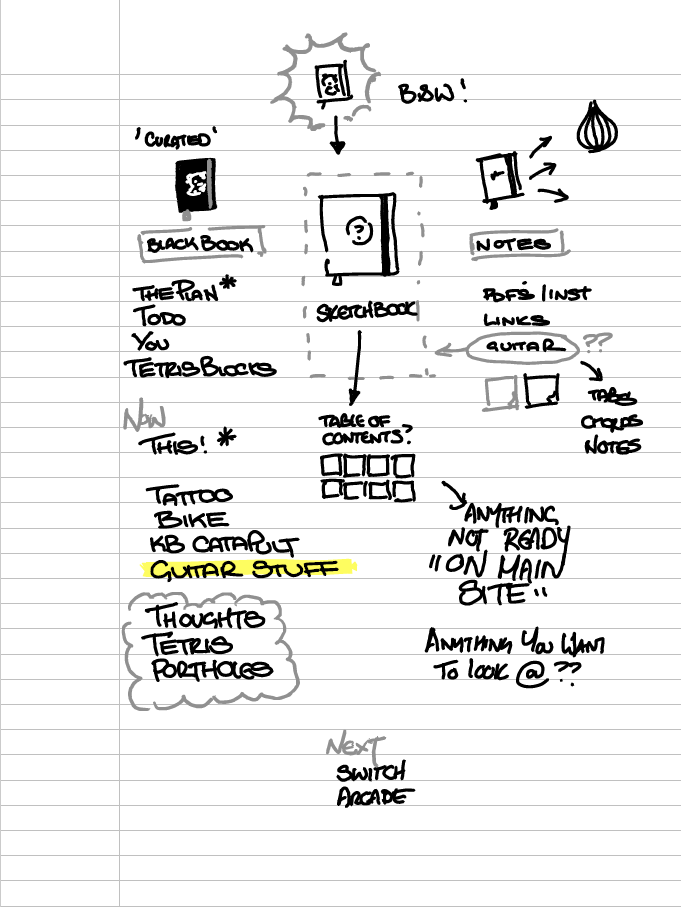 B.S.W!
'CURATED'
BLACKBOOK
?
SKETCHBOOK
NOTES
THE PLAN *
TODO
YOU
TETRIS BLOCKS
PDF'S / INST
LINKS
GUITAR ??
TABS
CHORDS
NOTES
NOW
THIS! *
TATTOO
BIKE
KB CATAPULT
GUITAR STUFF
THOUGHTS
TETRIS
PORTHOLES
TABLE OF
CONTENTS?
ANYTHING
NOT READY
"ON MAIN
SITE"
ANYTHING YOU WANT
TO LOOK @ ??
NEXT
SWITCH
ARCADE